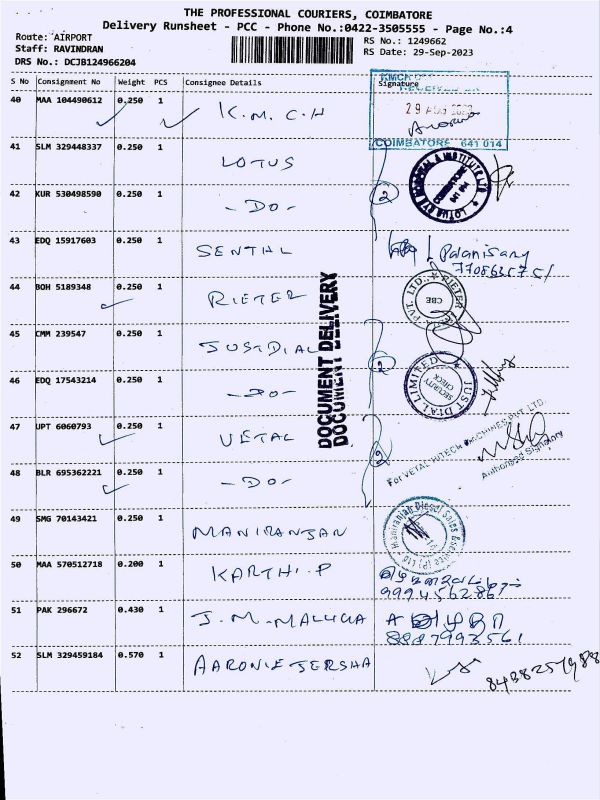 THE PROFESSIONAL COURIERS, COIMBATORE
Delivery Runsheet - PCC - Phone No.:0422-3505555 - Page No.:4
Route: AIRPORT
Staff: RAVINDRAN
DRS No.: DCJB124966204
RS No.: 1249662
RS Date: 29-Sep-2023
S No Consignment No Weight PCS Consignee Details Signature
40 MAA 104490612 0.250 1 K.M.C.H
KMCH
29 AUG 2023
COIMBATORE 641 014
41 SLM 329448337 0.250 1 LOTUS
42 KUR 530498590 0.250 1 -DO-
2
LOTUS EYE HOSPITAL & INSTITUTE LTD
COIMBATORE
641 014
43 EDQ 15917603 0.250 1 SENTHIL
Palanisamy
44 BOH 5189348 0.250 1 RIETER
RIETER
PVT. LTD.,
CBE
DOCUMENT DELIVERY
DOCUMENT DELIVERY
45 CMM 239547 0.250 1 JUSTDIAL
46 EDQ 17543214 0.250 1 -DO-
2
JUST DIAL LIMITED
SECURITY
CHECK
47 UPT 6060793 0.250 1 VETAL
48 BLR 695362221 0.250 1 -DO-
2
For VETAL HITECH MACHINES PVT. LTD.
Authorised Signatory
49 SMG 70143421 0.250 1 MANIRANJAN
Maniranjan Diesel Sales
(P) Ltd
50 MAA 570512718 0.200 1 KARTHI.P
51 PAK 296672 0.430 1 J.M.MALLIGA
8887993561
52 SLM 329459184 0.570 1 AARONIE JERSHA
8438257988